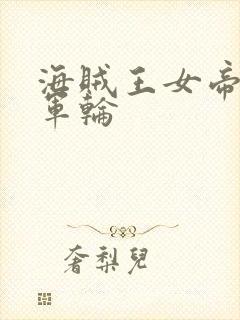 海賊王女帝
軍輪
奢梨兒